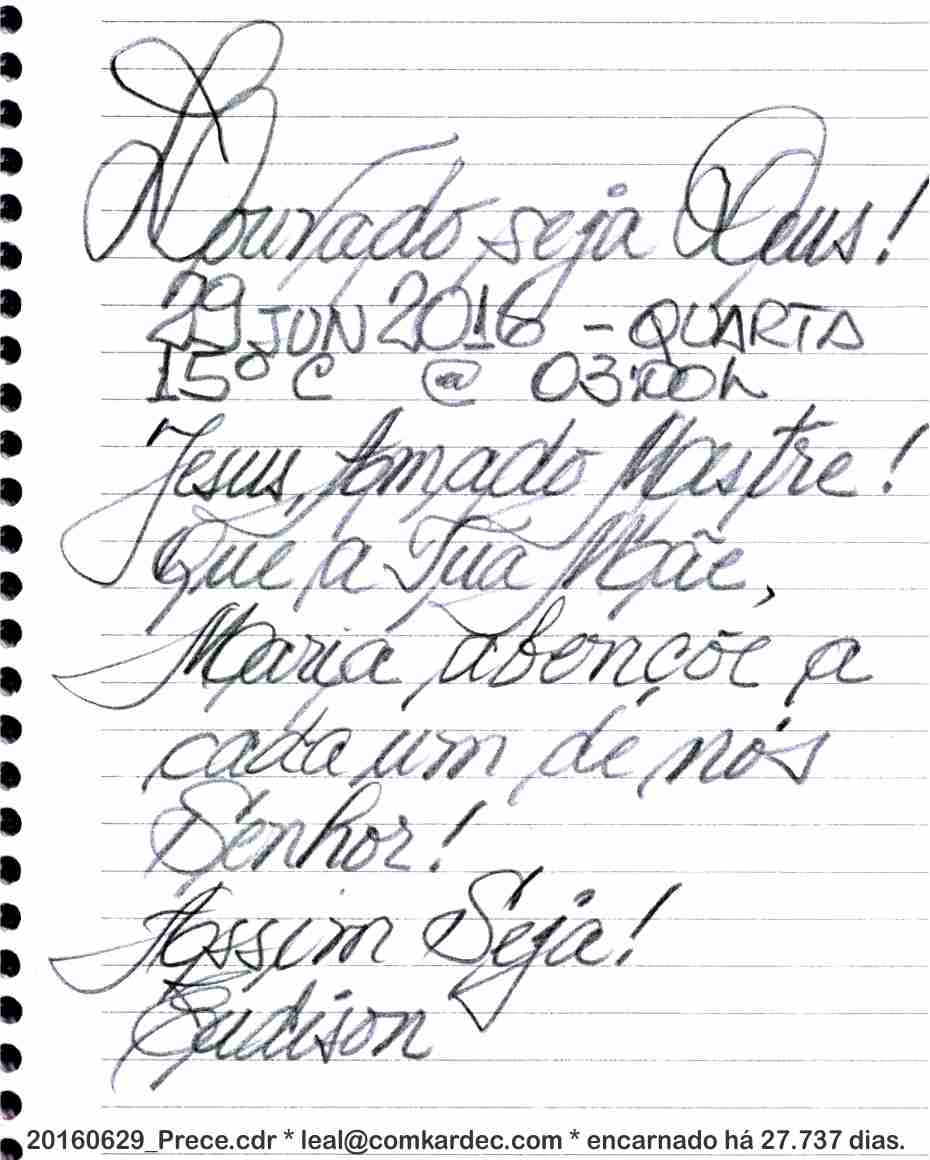 Louvado seja Deus!
29 JUN 2016 - QUARTA
15º C @ 03:00h
Jesus, Amado Mestre!
Que a Tua Mãe,
Maria abençõe a
cada um de nós
Senhor!
Assim Seja!
Eudison
20160629_Prece.cdr * leal@comkardec.com * encarnado há 27.737 dias.